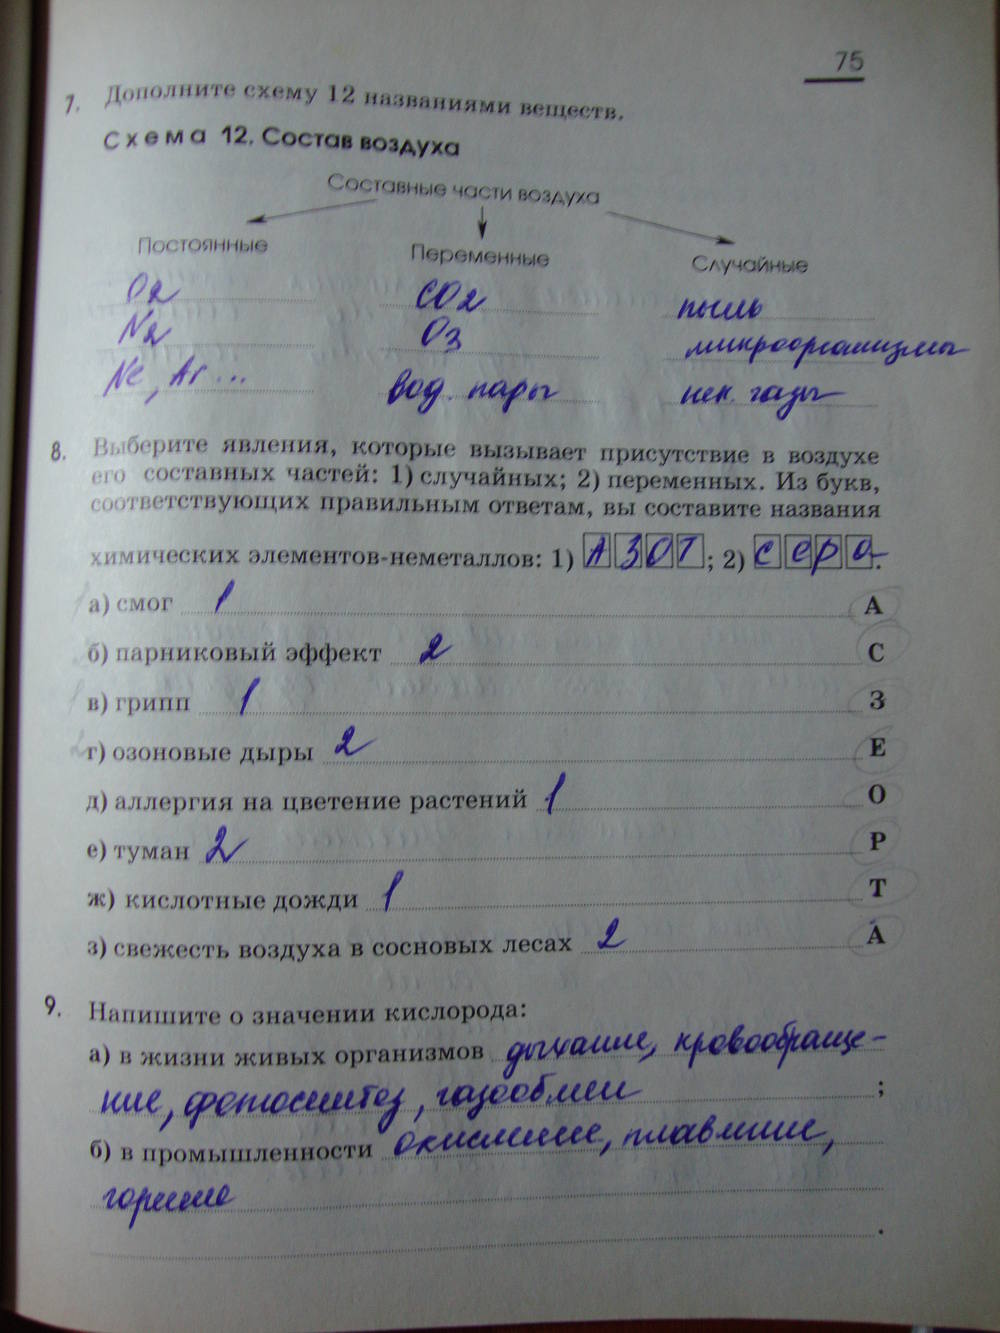 75
7. Дополните схему 12 названиями веществ.
Схема 12. Состав воздуха
Составные части воздуха
Постоянные Переменные Случайные
O2 CO2 пыль
N2 O3 микроорганизмы
Ne, Ar ... вод. пары нек. газы
8. Выберите явления, которые вызывает присутствие в воздухе
его составных частей: 1) случайных; 2) переменных. Из букв,
соответствующих правильным ответам, вы составите названия
химических элементов-неметаллов: 1) АЗОТ; 2) сера.
а) смог 1 А
б) парниковый эффект 2 С
в) грипп 1 З
г) озоновые дыры 2 Е
д) аллергия на цветение растений 1 О
е) туман 2 Р
ж) кислотные дожди 1 Т
з) свежесть воздуха в сосновых лесах 2 А
9. Напишите о значении кислорода:
а) в жизни живых организмов дыхание, кровообраще-
ние, фотосинтез, газообмен ;
б) в промышленности окисление, плавление,
горение
.